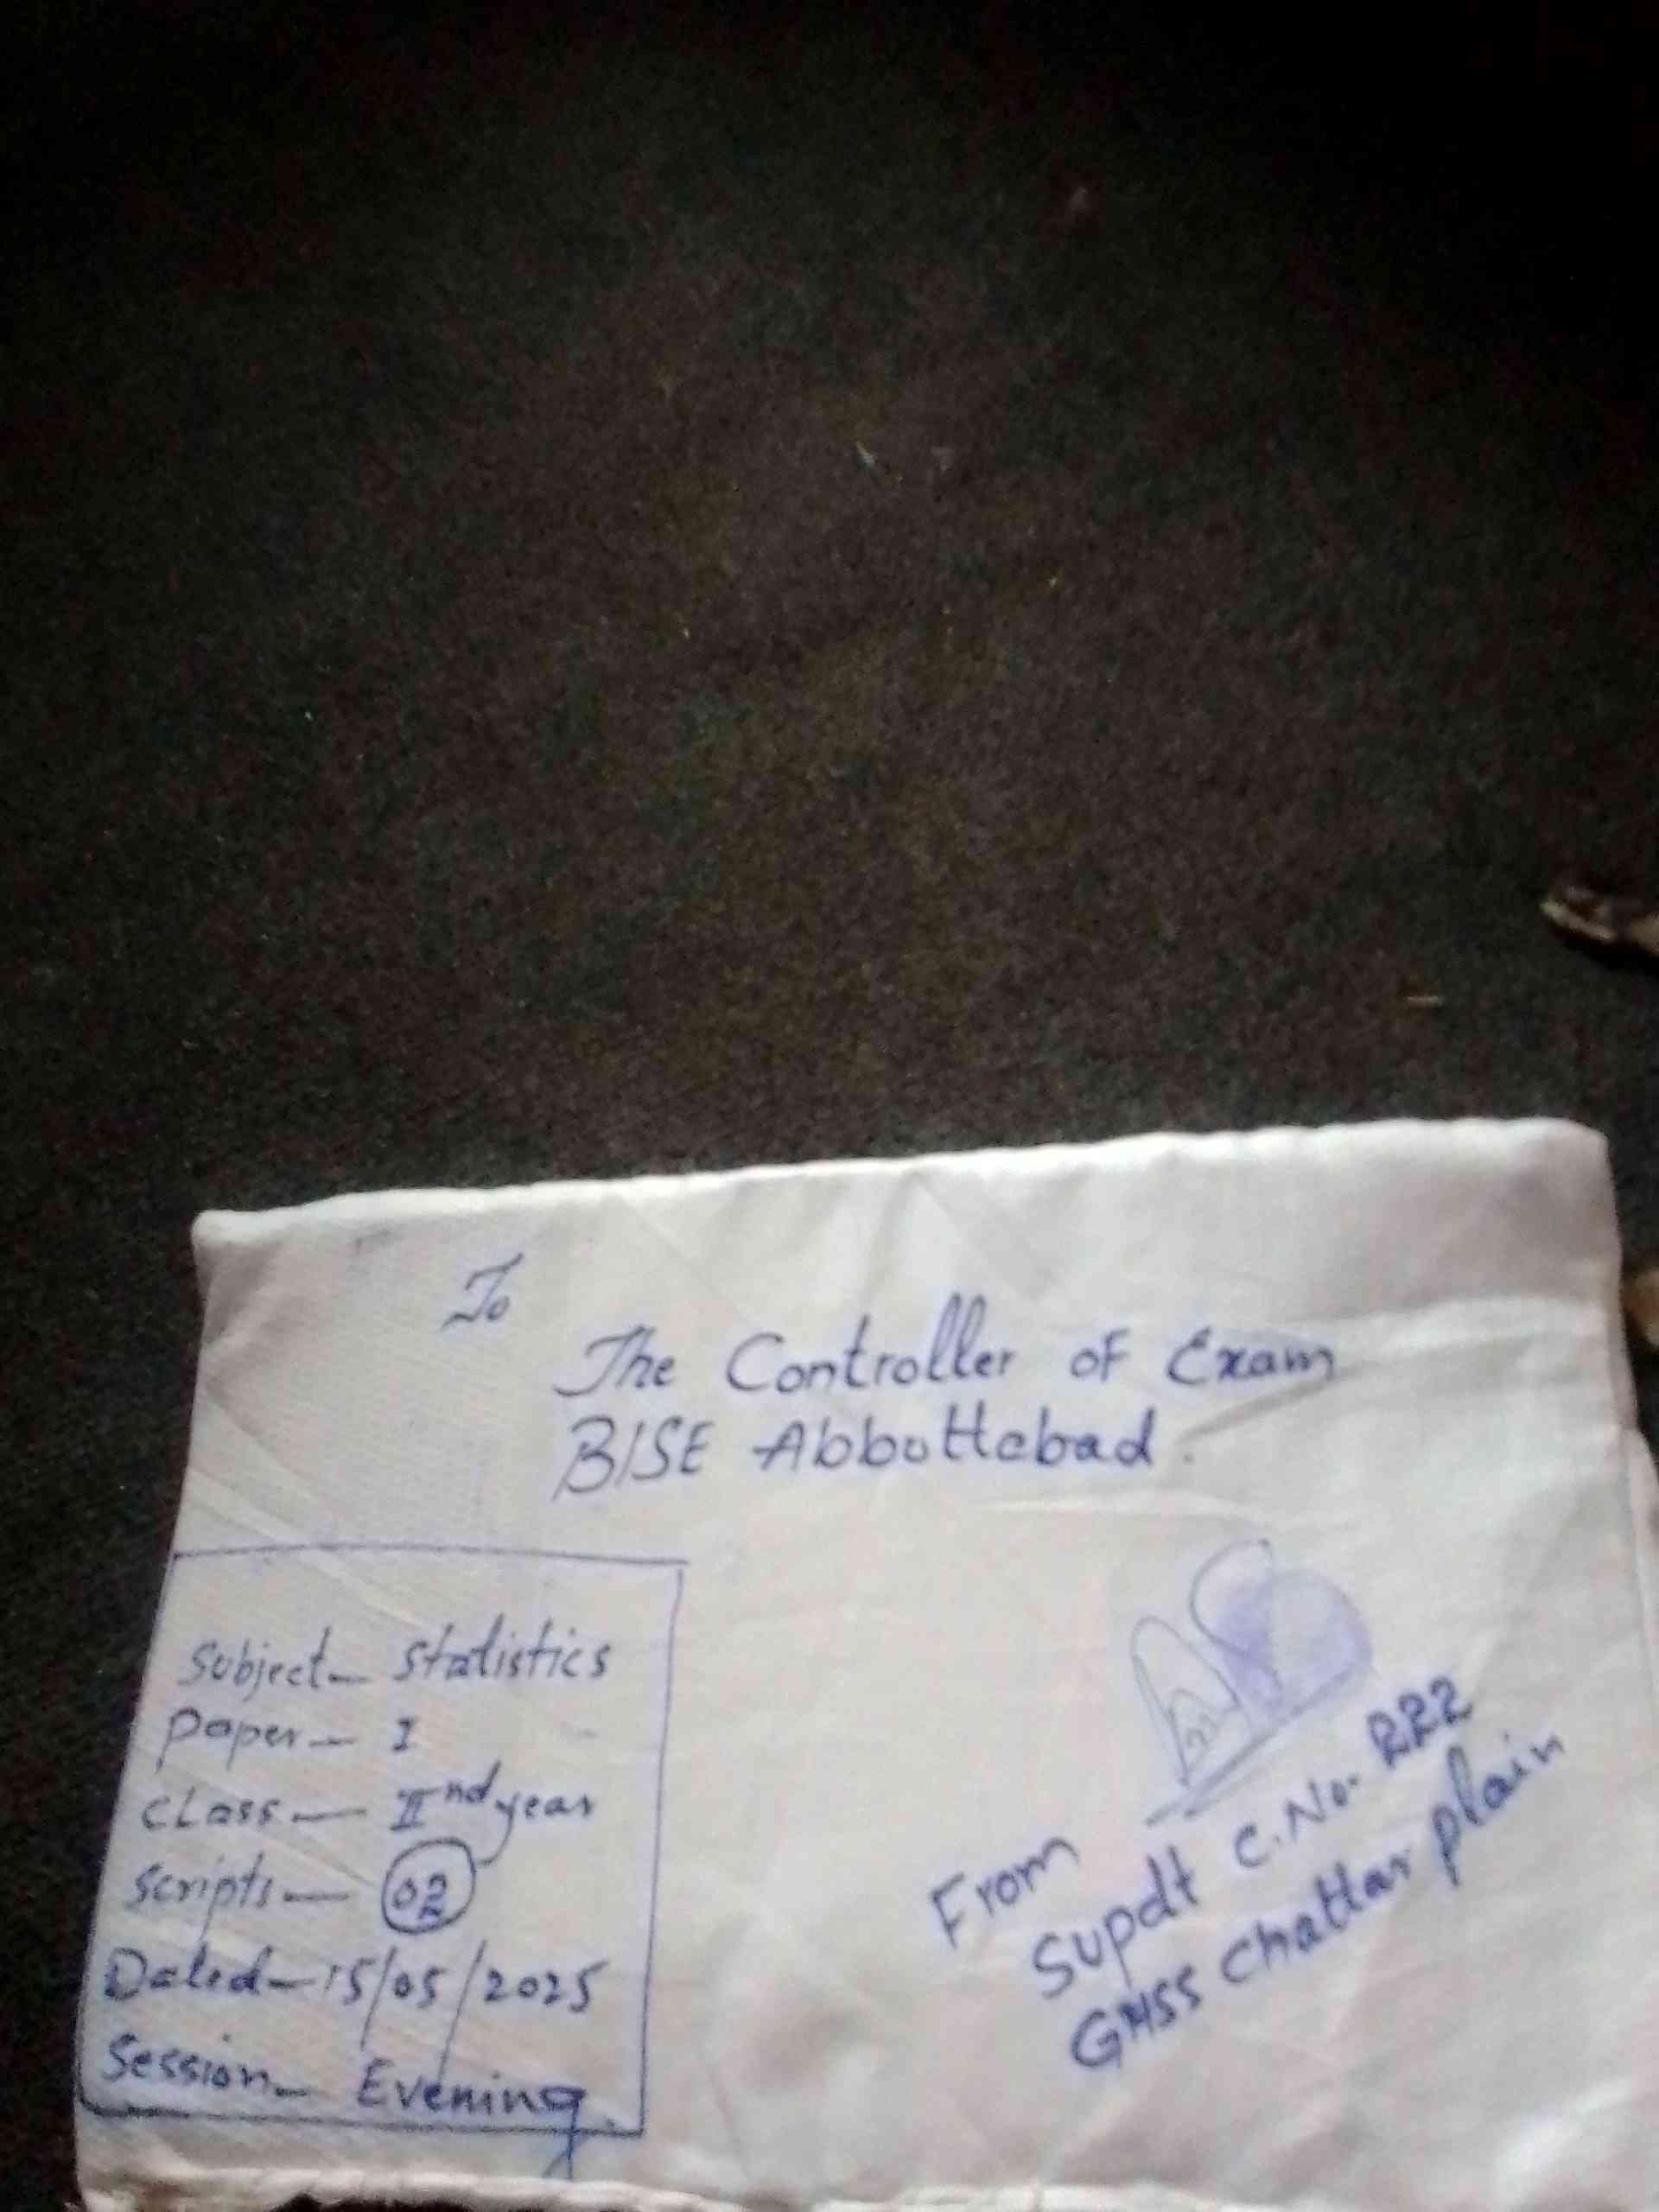 To
The Controller of Exam
BISE Abbottabad.
Subject - Statistics
Paper - I
Class - IInd year
Scripts - 02
Dated - 15/05/2025
Session - Evening.
From
Supdt C.No.
GHSS Chattar plain